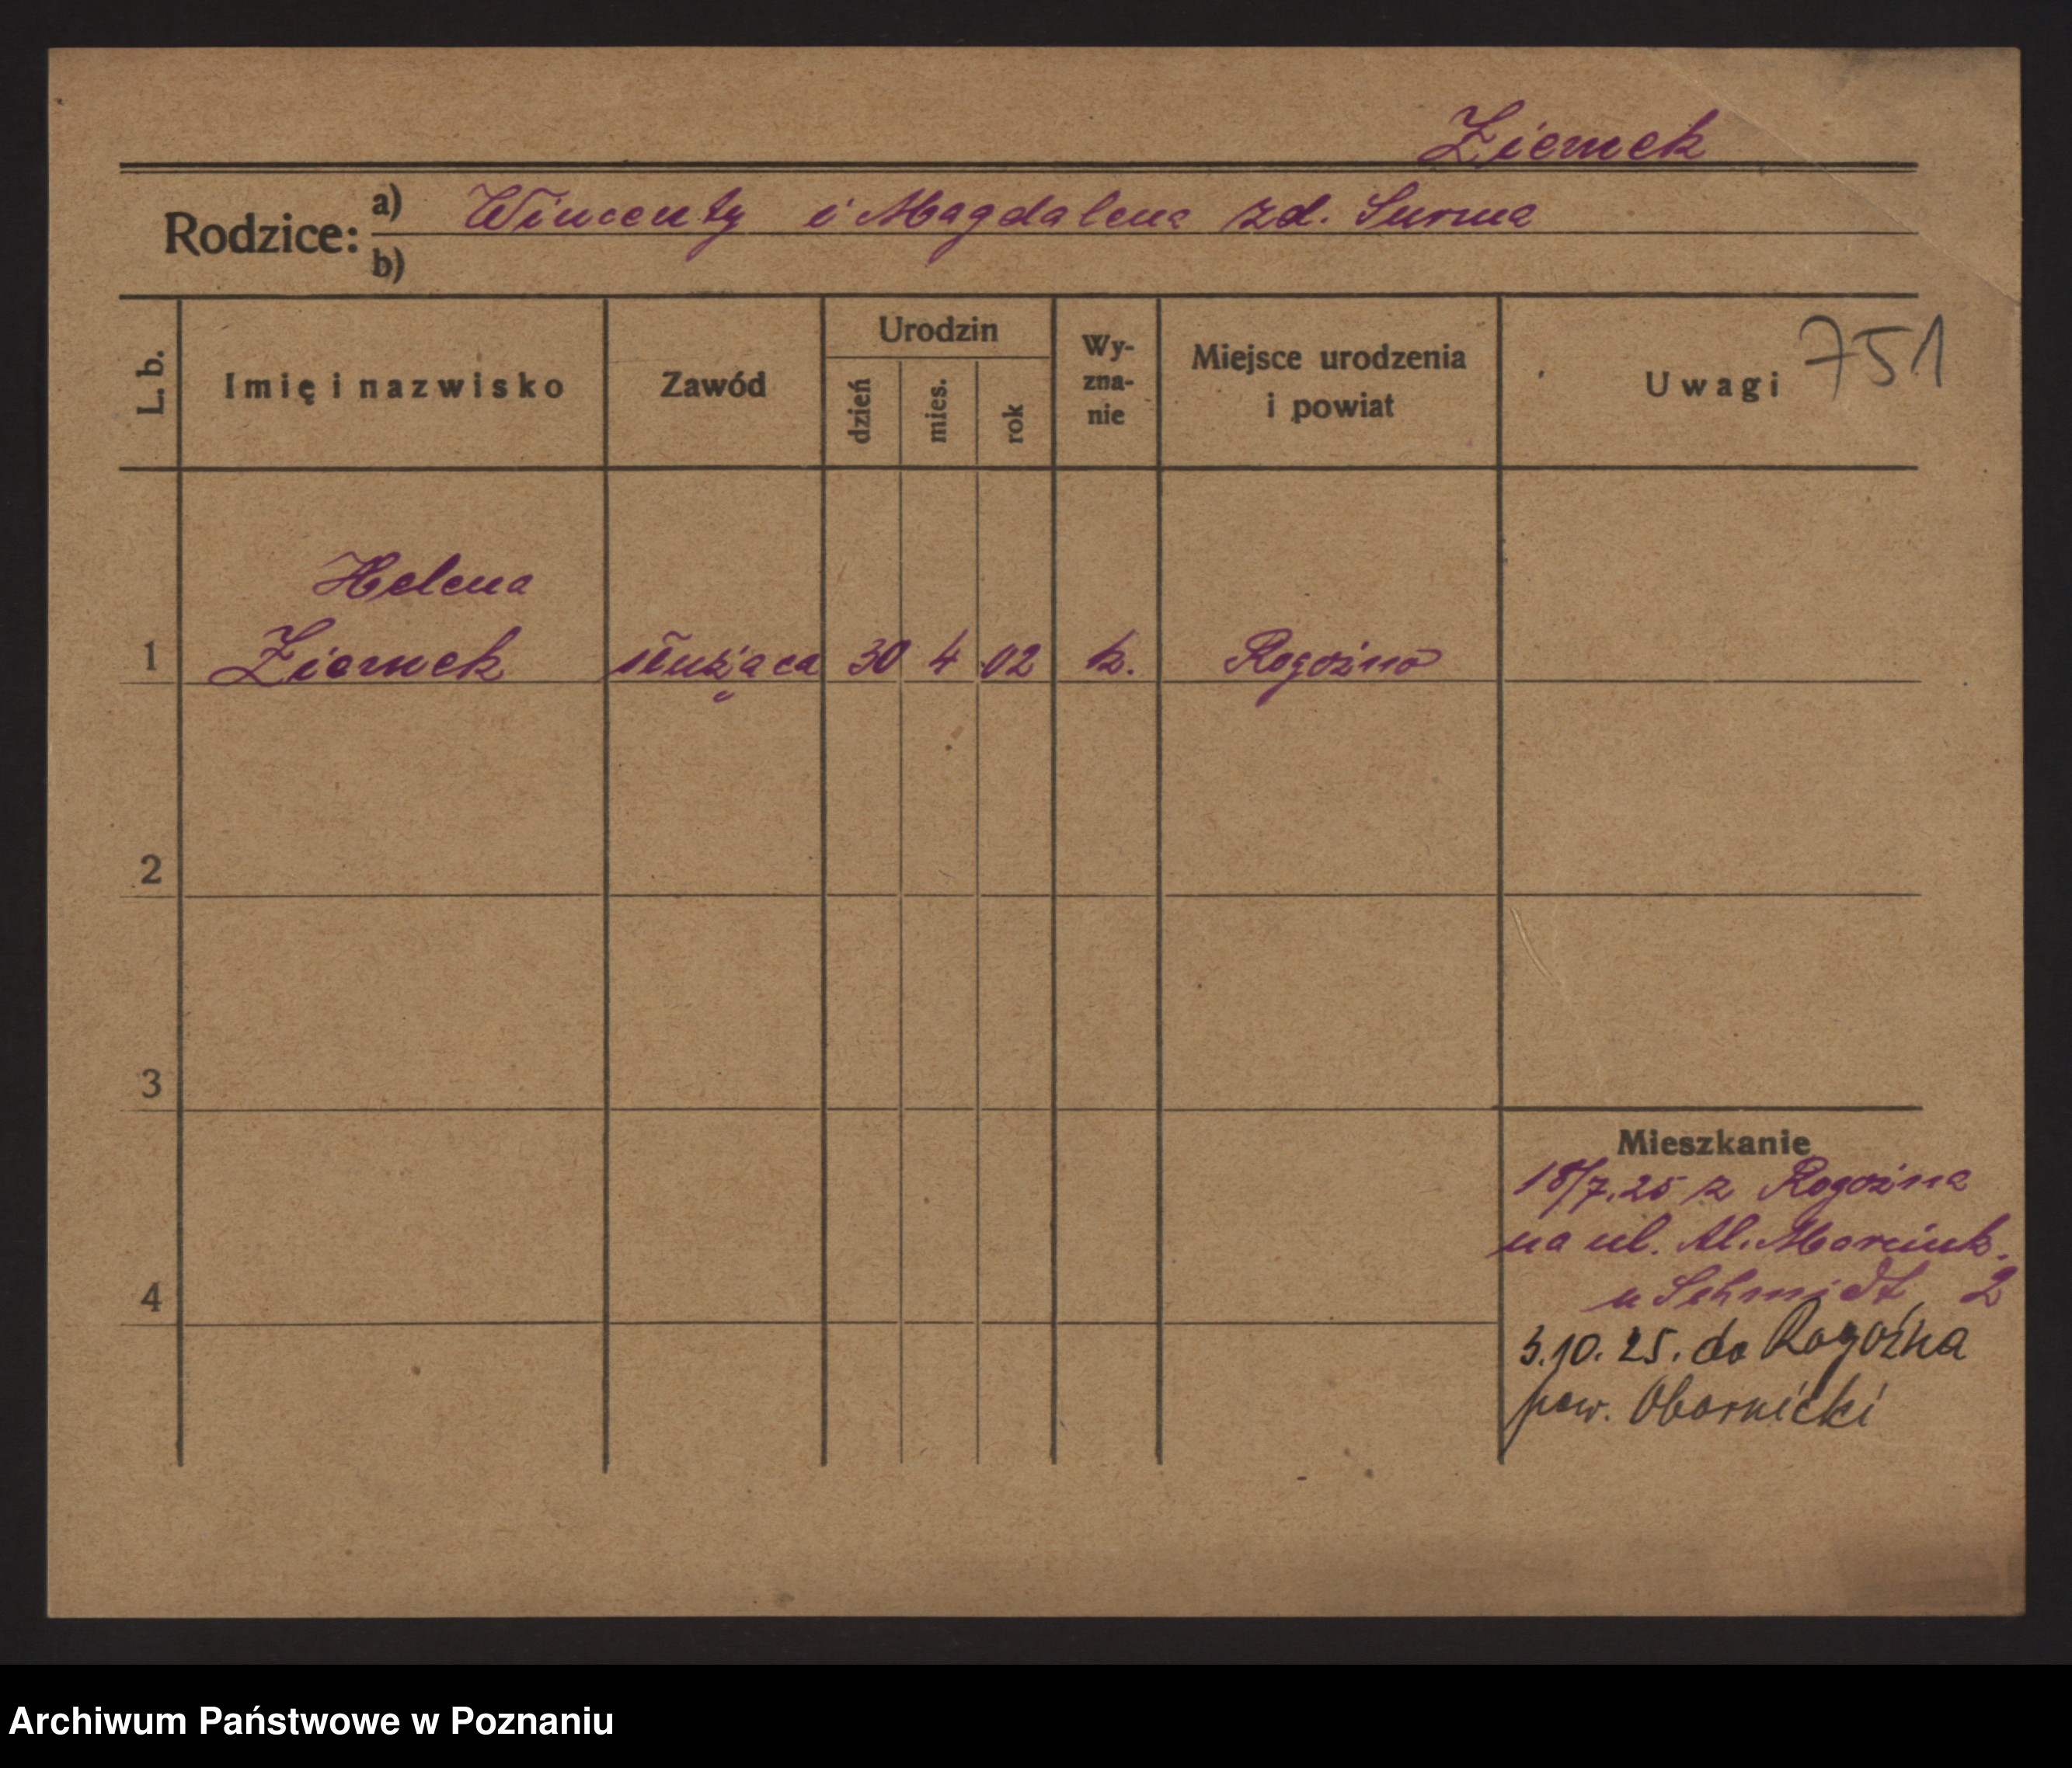 Ziemek
Rodzice: a) Wincenty i Magdalena zd. Surma
b)
L. b. Imię i nazwisko Zawód Urodzin dzień mies. rok Wy-zna-nie Miejsce urodzenia i powiat Uwagi 751
Helena
1 Ziemek służąca 30 4 02 k. Rogoźno
2
3
Mieszkanie
18/7.25 z Rogoźna
na ul. Al. Marcink.
4 u Schmidt 2
3.10.25. do Rogoźna
pow. Obornicki
Archiwum Państwowe w Poznaniu